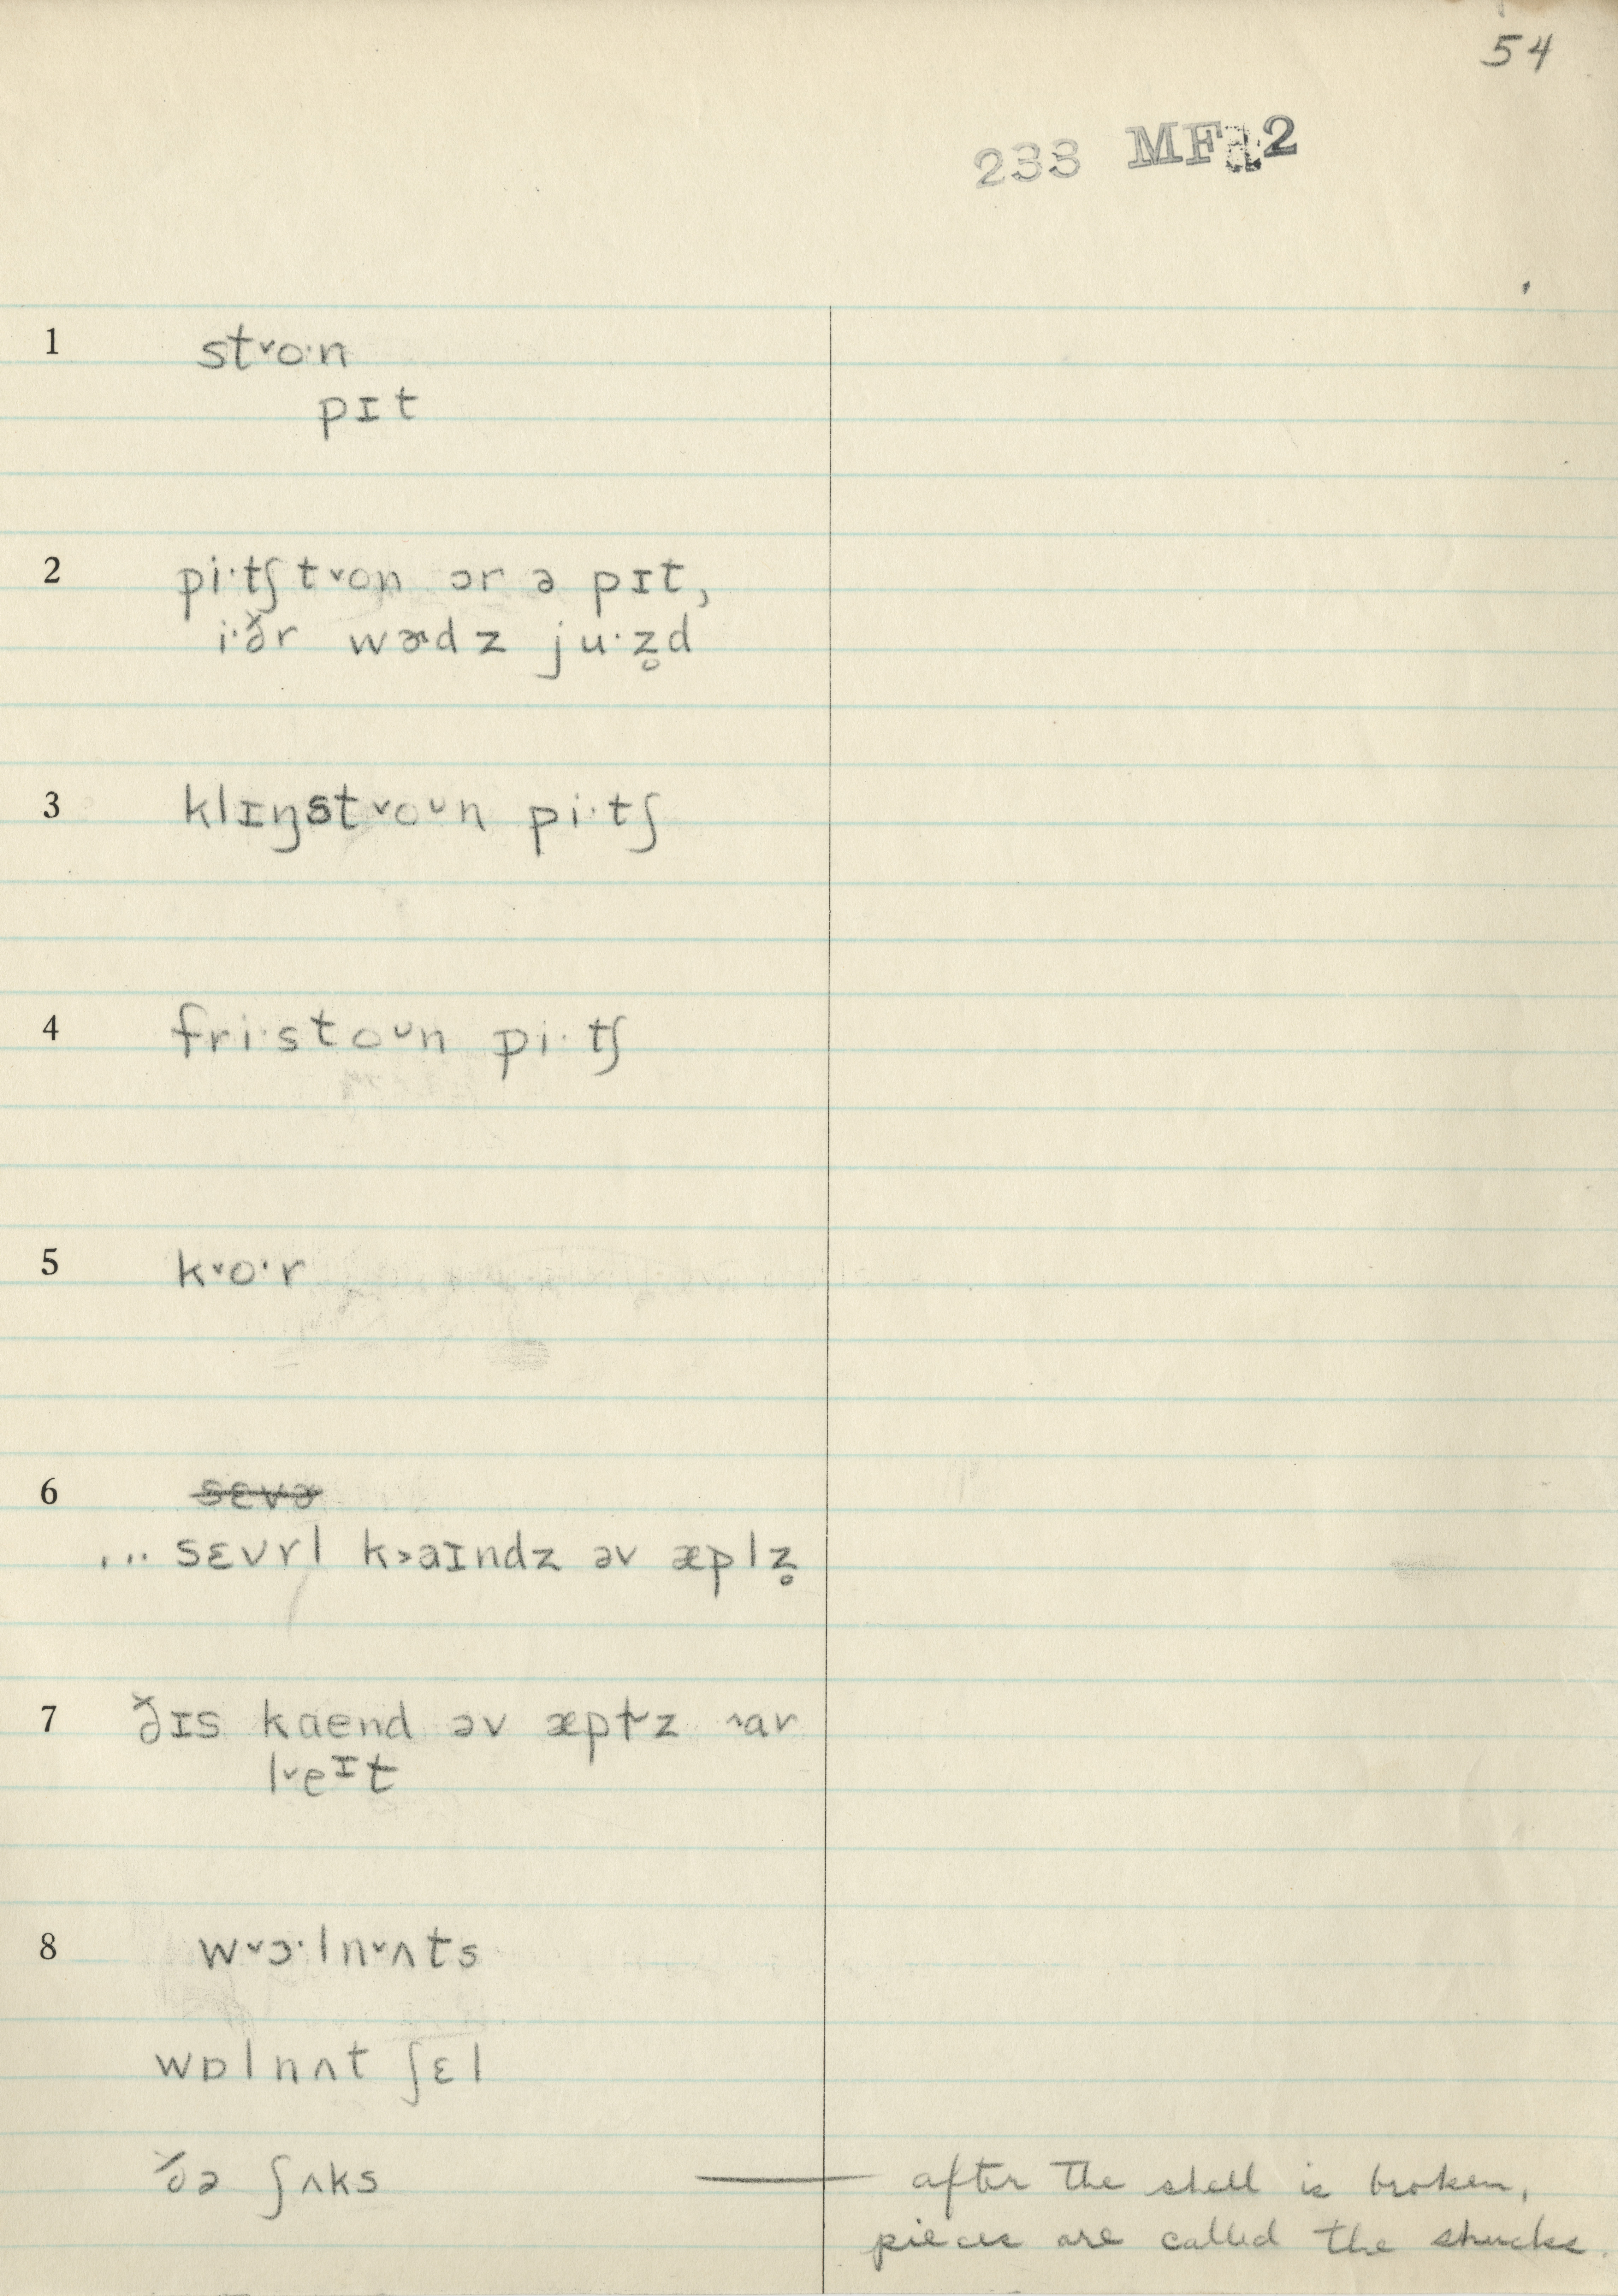 54
233 MFa2
1 st˅o·n
pɪt
2 pi·tʃt˅on ɔr ə pɪt,
i·ðr wɚdz ju·z̥d
3 klɪŋst˅oᴗn pi·tʃ
4 fri·stoᴗn pi·tʃ
5 k˅o·r
6 sɛvɚ
... sɛvrl k˃aɪndz əv æplz̥
7 ðɪs kaend əv æpɫz ˄ar
l˅eɪt
8 w˅ɔ·ln˅ʌts
wɒlnʌt ʃɛl
ðə ʃʌks — after the shell is broken,
pieces are called the shucks.